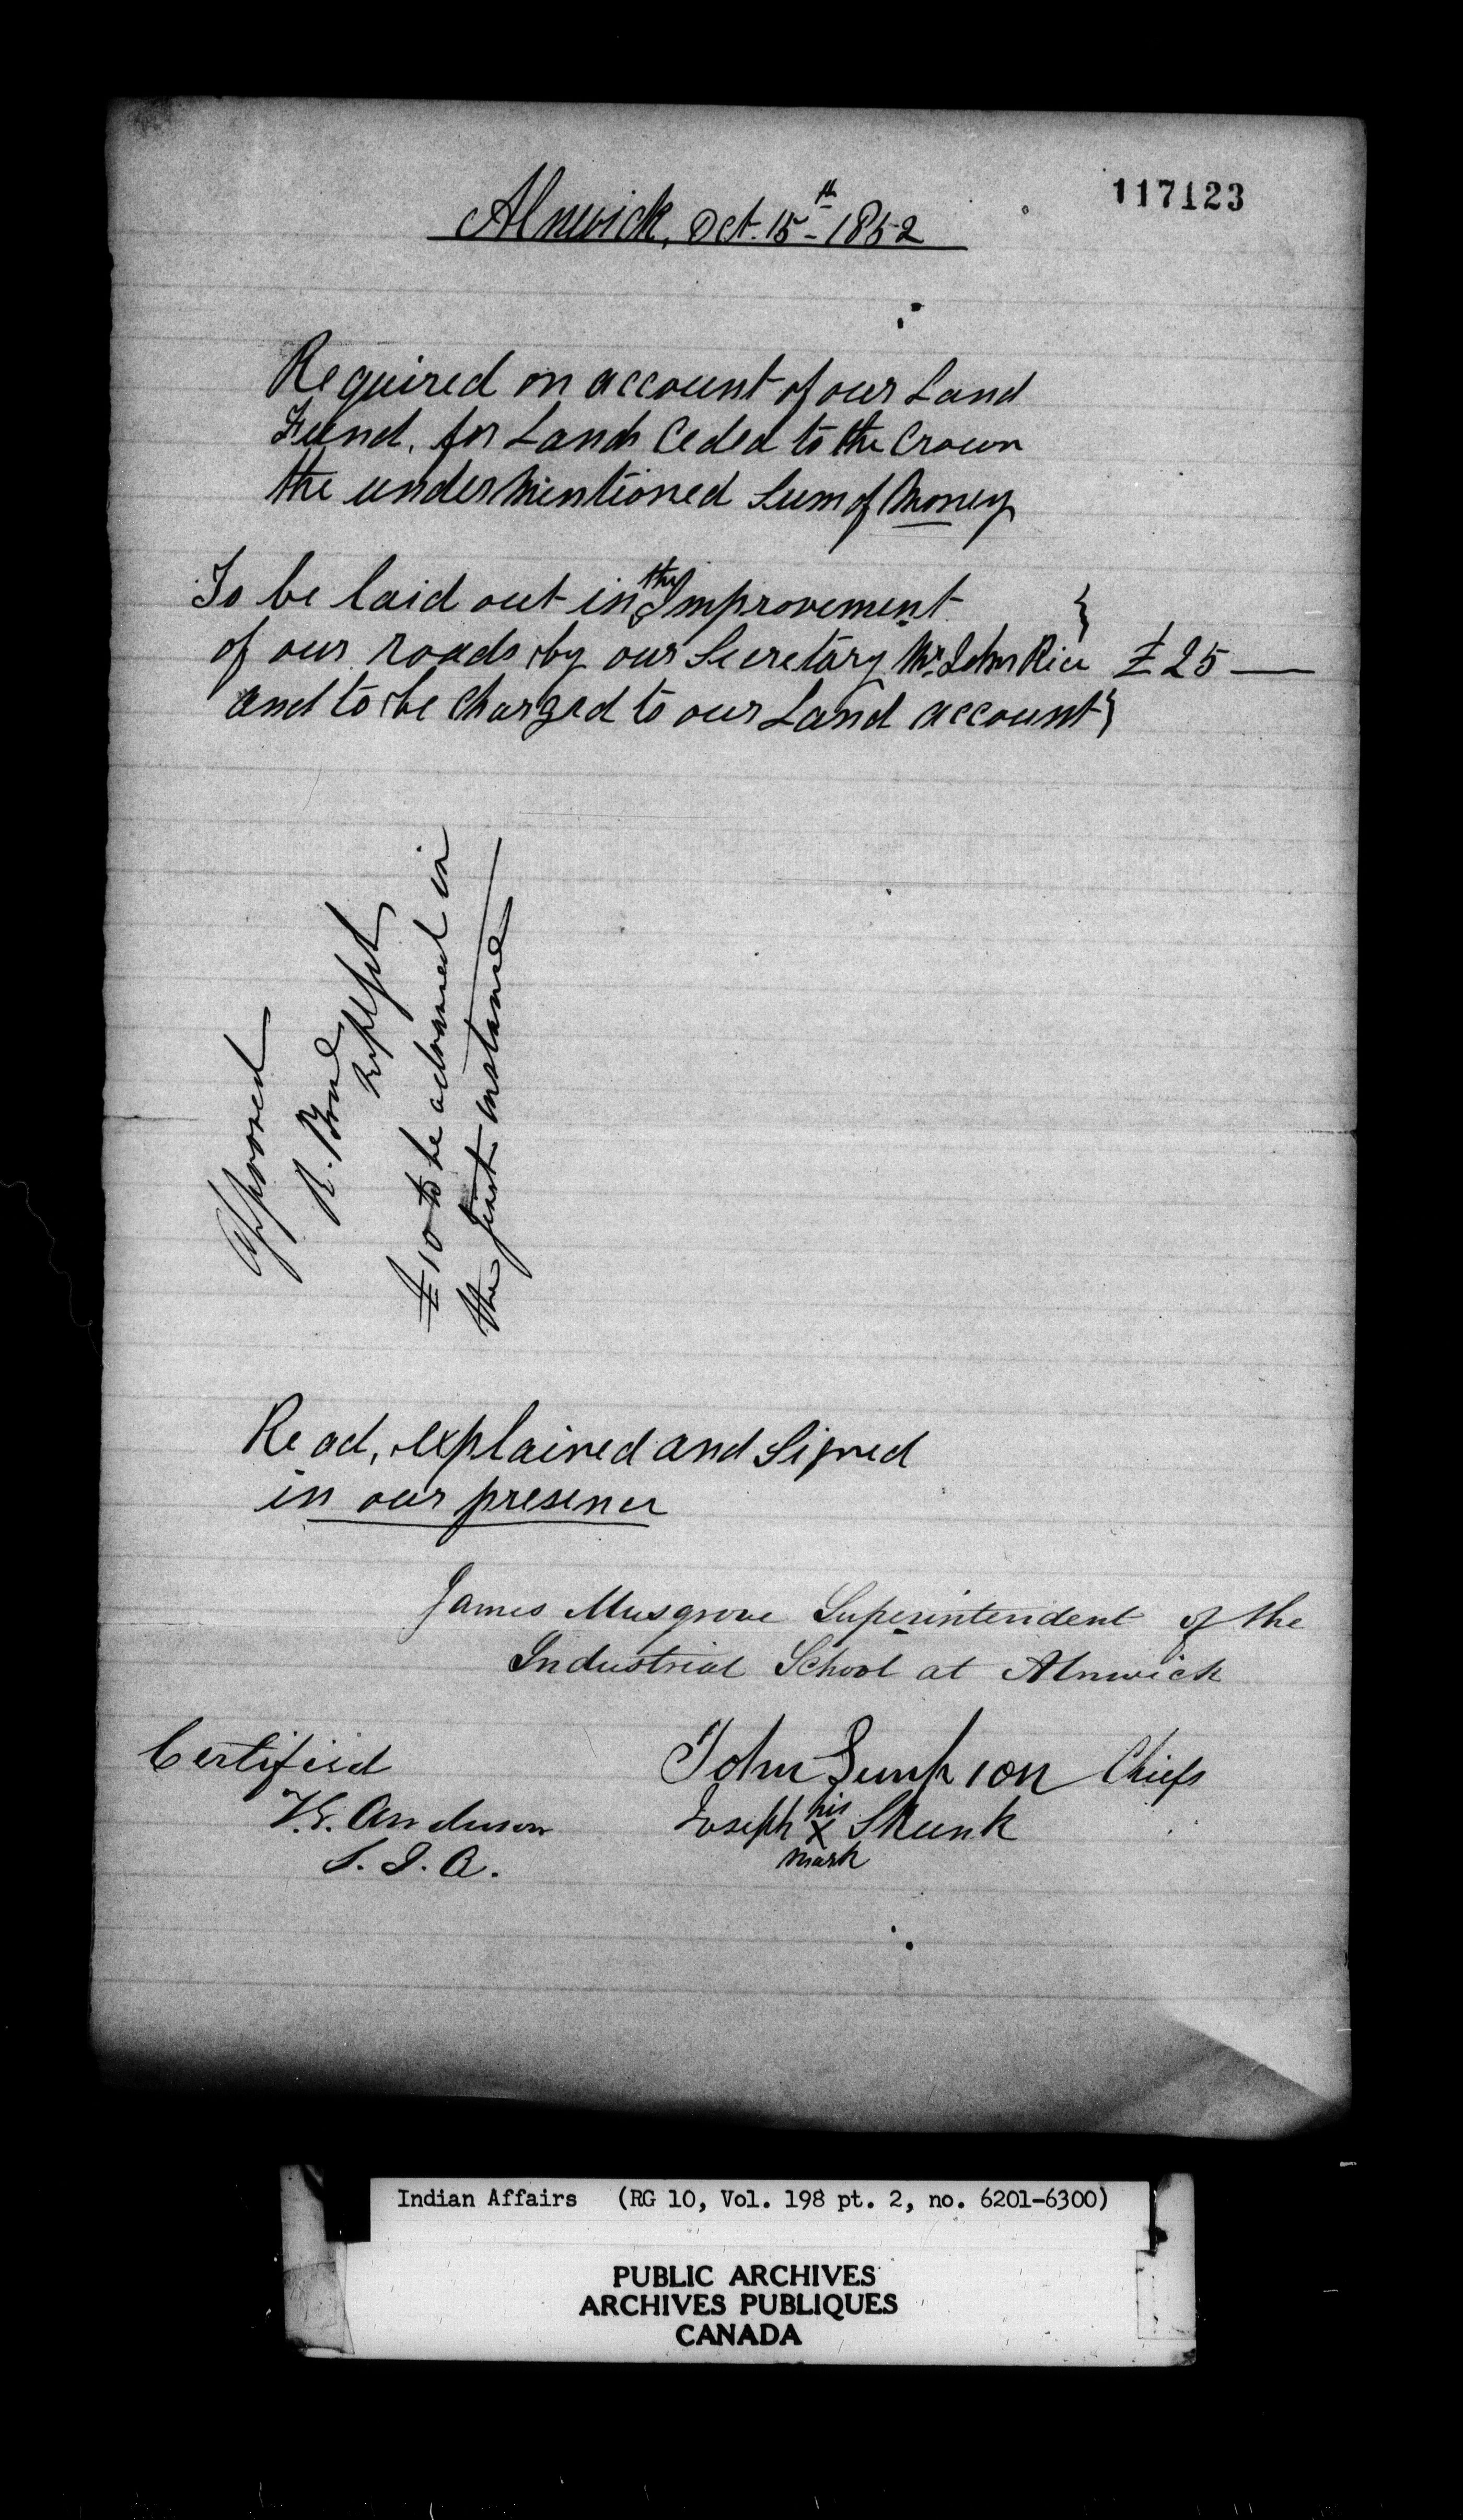 117123
Alnwick, Oct. 15th 1852
Required on account of our Land
Fund, for Lands Ceded to the Crown
the undermentioned Sum of Money
To be laid out in the Improvement
of our roads by our Secretary Mr. John Rice £25
and to be Charged to our Land account
Approved
R. Bruce
£10 to be advanced in
the first instance
Read, explained and Signed
in our presence
James Musgrove Superintendent of the
Industrial School at Alnwick
Certified
T.G. Anderson
S. I. A.
John Simpson Chiefs
Joseph his X mark Skunk
Indian Affairs (RG 10, Vol. 198 pt. 2, no. 6201-6300)
PUBLIC ARCHIVES
ARCHIVES PUBLIQUES
CANADA